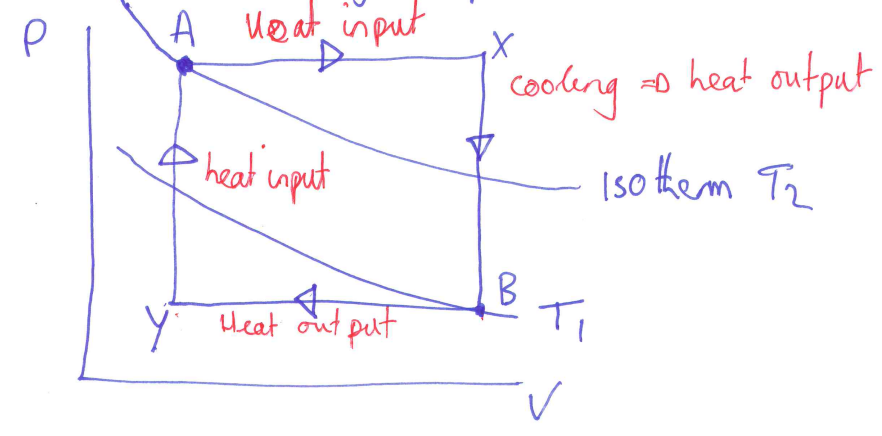 P
A
Heat input
X
cooling => heat output
heat input
Isotherm T2
B
Y
Heat output
T1
V